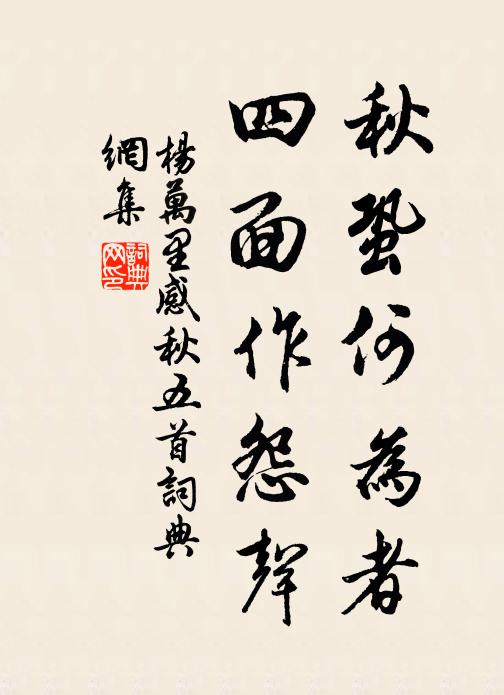 秋蛩何為者
四面作怨聲
楊萬里感秋五首詞典
網集
詞典
网印